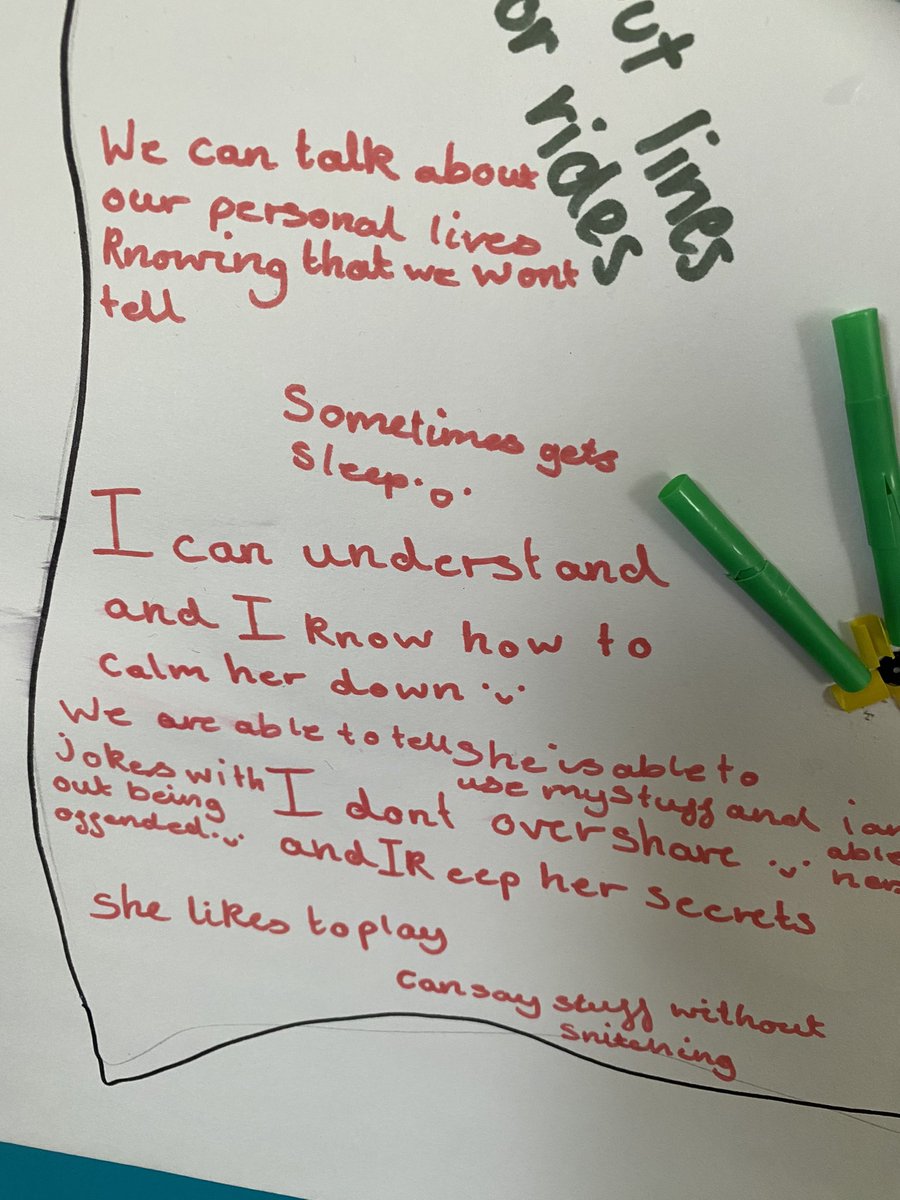 ut lines
or rides
We can talk about
our personal lives
Knowing that we wont
tell
Sometimes gets
sleep
I can understand
and I know how to
calm her down
We are able to tell
jokes with
out being
offended
She is able to
use my stuff and i
able
I dont overshare
and I Keep her secrets
She likes to play
can say stuff without
snitching